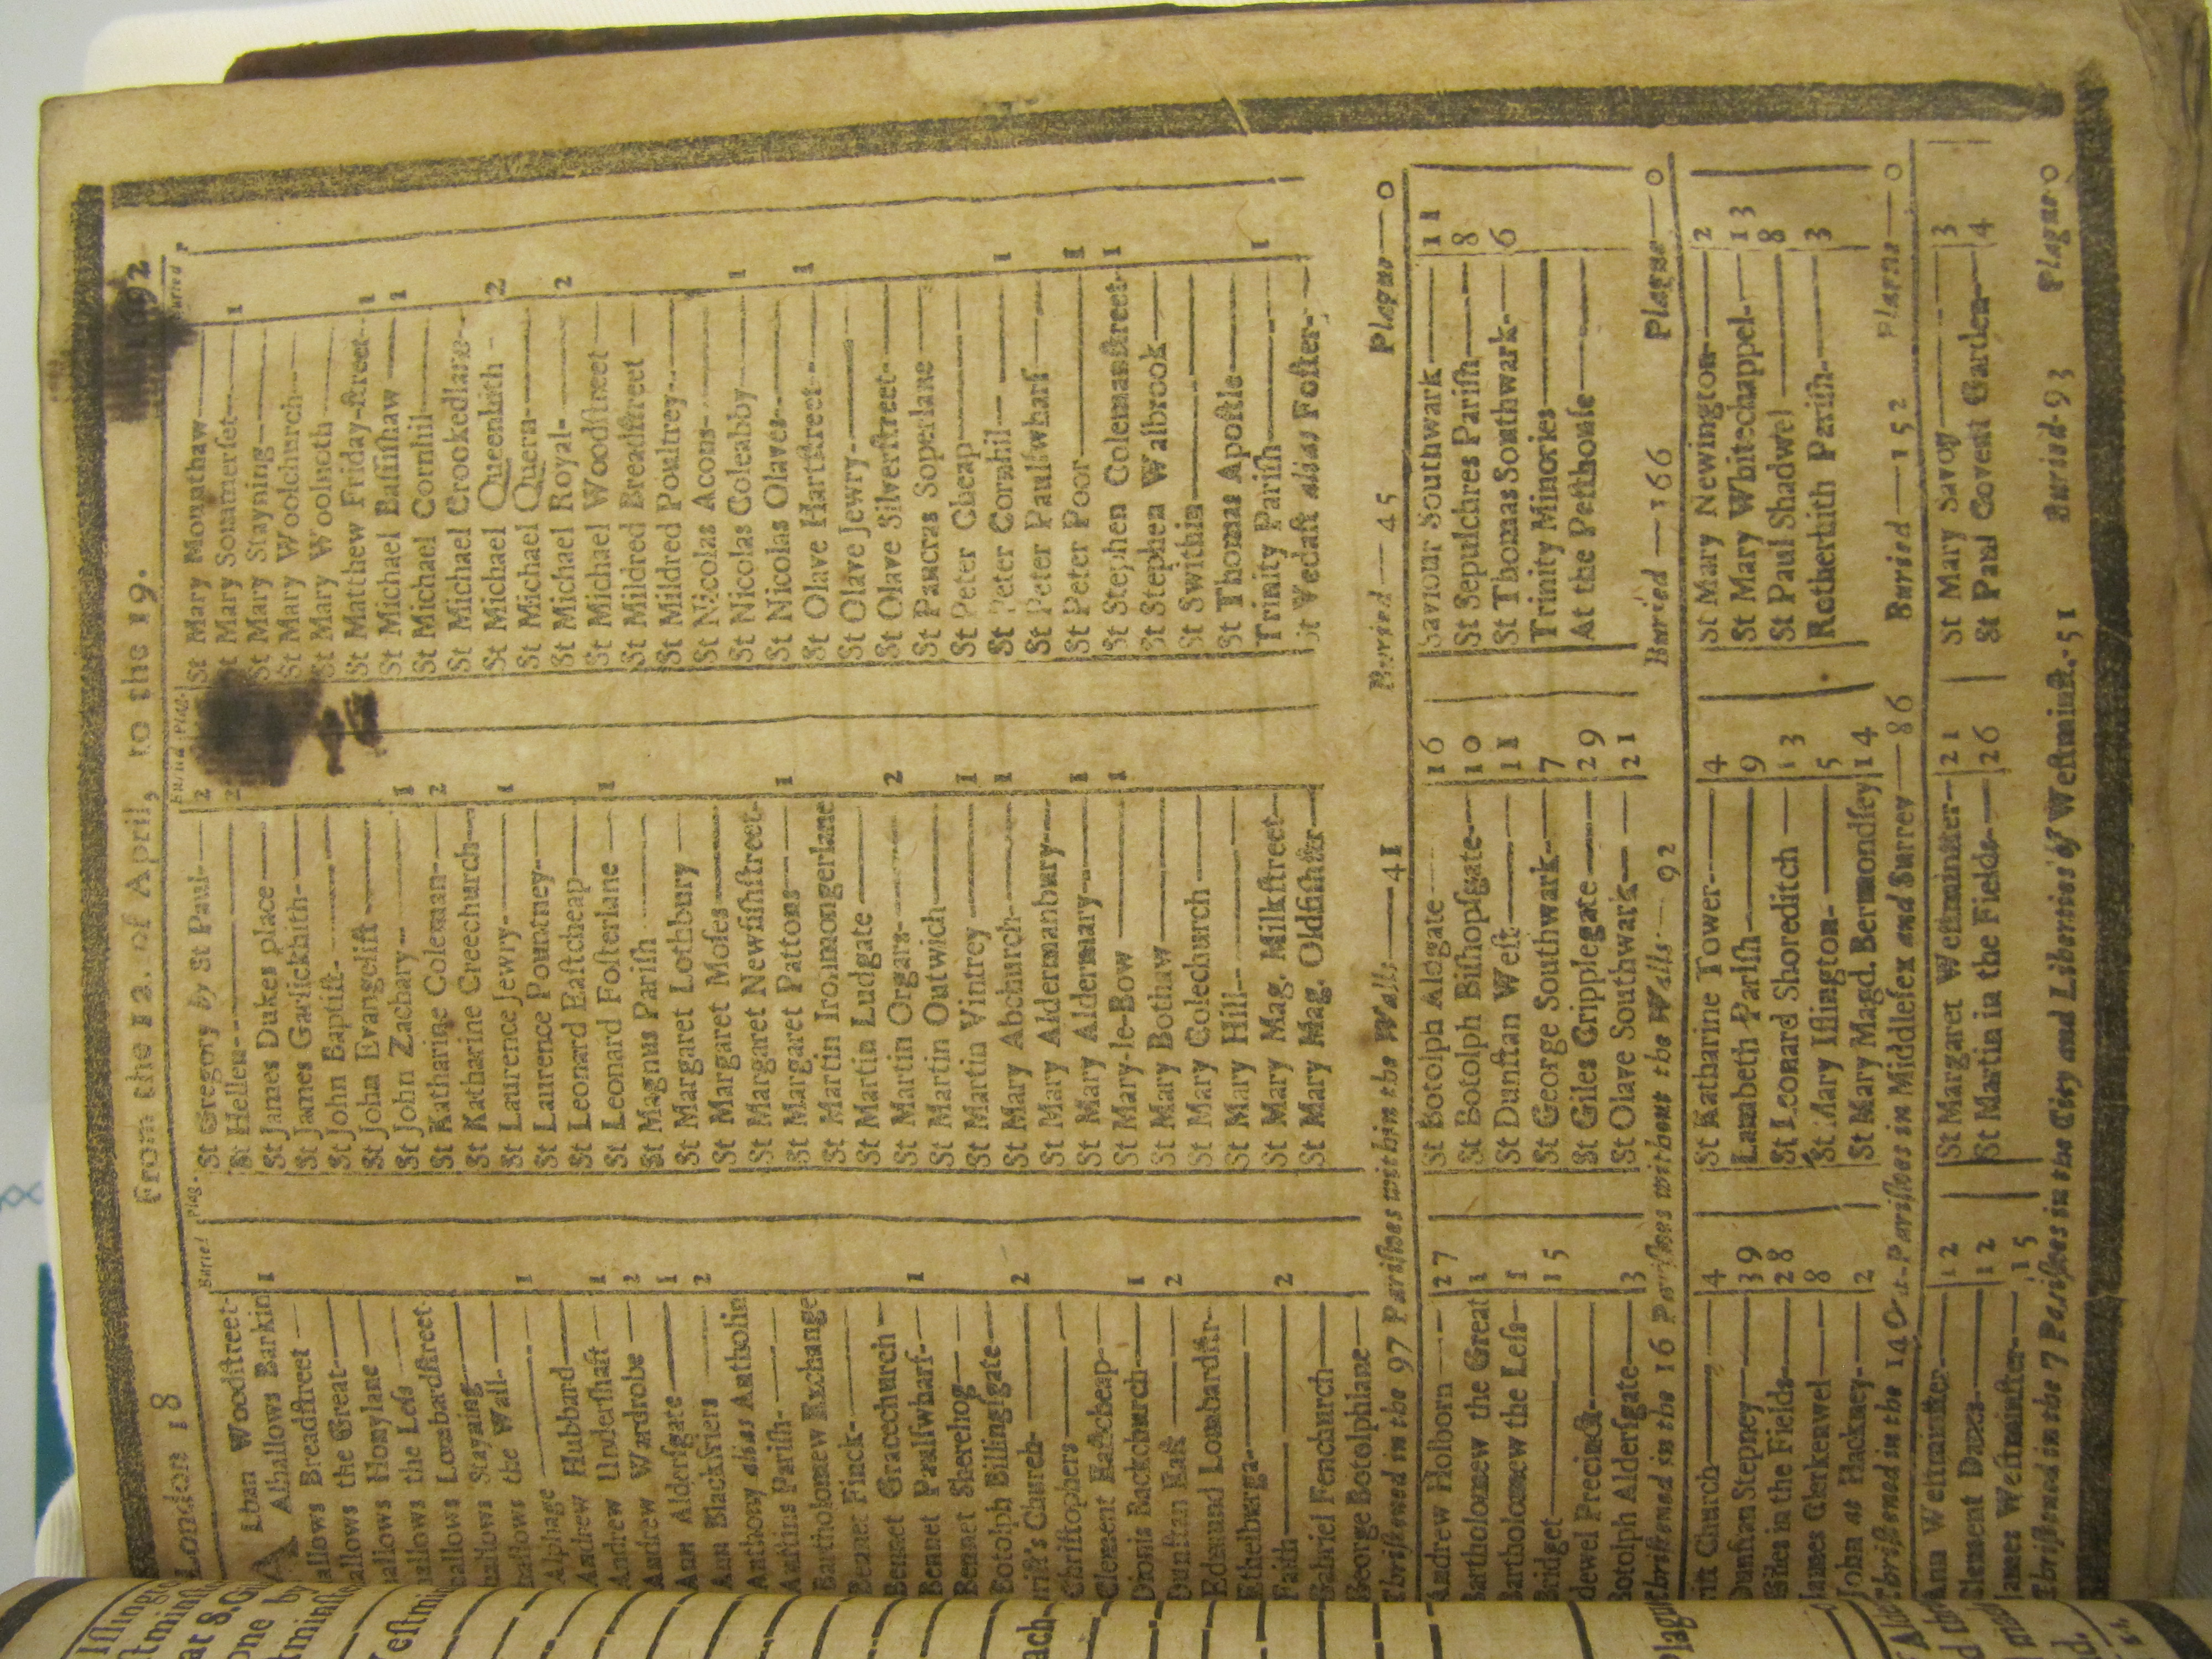 London 18 From the 12. of April, to the 19. 1692
Buried Plag.
Buried Plag.
Buried P
Lban Woodstreet-
A Alhallows Barkin 1
allows Breadstreet
allows the Great-
allows Honylane
allows the Less
allows Lombardstreet
allows Stayning
allows the Wall- 1
Alphage
Andrew Hubbard 1
Andrew Undershaft 1
Andrew Wardrobe 2
Ann Aldersgate 1
Ann Blackfriers 2
Anthony alias Antholin
Austins Parish-
Bartholomew Exchange
Bennet Finck-
Bennet Gracechurch
Bennet Paulswharf- 1
Bennet Sherehog
Botolph Billingsgate
rist's Church- 2
Christophers
Clement Eastcheap
Dionis Backchurch 1
Dunstan East 2
Edmund Lombardstr-
Ethelberga
Faith 2
Gabriel Fenchurch
George Botolphlane
St Gregory by St Paul- 2
St Hellen- 2
St James Dukes place
St James Garlickhith-
St John Baptist-
St John Evangelist
St John Zachary 1
St Katharine Coleman- 2
St Katharine Creechurch
St Laurence Jewry- 1
St Laurence Pountney-
St Leonard Eastcheap
St Leonard Fosterlane 1
St Magnus Parish
St Margaret Lothbury
St Margaret Moses
St Margaret Newfishstreet-
St Margaret Pattons 1
St Martin Ironmongerlane
St Martin Ludgate
St Martin Orgars- 2
St Martin Outwich
St Martin Vintrey 1
St Mary Abchurch- 1
St Mary Aldermanbury-
St Mary Aldermary- 1
St Mary-le-Bow 1
St Mary Bothaw
St Mary Colechurch
St Mary Hill-
St Mary Mag. Milkstreet-
St Mary Mag. Oldfishstr
St Mary Mounthaw
St Mary Sommerset 1
St Mary Stayning
St Mary Woolchurch
St Mary Woolnoth
St Matthew Friday-street 1
St Michael Bassishaw 1
St Michael Cornhil
St Michael Crookedlane-
St Michael Queenhith - 2
St Michael Quern-
St Michael Royal- 2
St Michael Woodstreet
St Mildred Breadstreet
St Mildred Poultrey
St Nicolas Acons-
St Nicolas Coleabby 1
St Nicolas Olaves
St Olave Hartstreet 1
St Olave Jewry-
St Olave Silverstreet-
St Pancras Soperlane
St Peter Cheap
St Peter Cornhil 1
St Peter Paulswharf
St Peter Poor 1
St Stephen Colemanstreet- 1
St Stephen Walbrook
St Swithin
St Thomas Apostle
Trinity Parish 1
St Vedast alias Foster-
Christened in the 97 Parishes within the Walls 41 Buried 45 Plague 0
Andrew Holborn 27
Bartholomew the Great 1
Bartholomew the Less- 1
Bridget 15
dewel Precinct-
Botolph Aldersgate 3
St Botolph Aldgate 16
St Botolph Bishopsgate- 10
St Dunstan West 11
St George Southwark- 7
St Giles Cripplegate 29
St Olave Southwark 21
Saviour Southwark 11
St Sepulchres Parish 8
St Thomas Southwark 6
Trinity Minories
At the Pesthouse
Christened in the 16 Parishes without the Walls 92 Buried 166 Plague 0
rist Church 4
Dunstan Stepney 39
Giles in the Fields 28
James Clerkenwel 8
John at Hackney- 2
St Katharine Tower 4
Lambeth Parish 9
St Leonard Shoreditch 13
St Mary Islington- 5
St Mary Magd. Bermondsey 14
St Mary Newington 2
St Mary Whitechappel- 13
St Paul Shadwel 8
Rotherhith Parish- 3
Christened in the 14 Out-Parishes in Middlesex and Surrey 86 Buried 152 Plague 0
Ann Westminster 12
Clement Danes 12
James Westminster 15
St Margaret Westminster- 21
St Martin in the Fields 26
St Mary Savoy 3
St Paul Covent Garden 4
Christened in the 7 Parishes in the City and Liberties of Westminst.- 51 Buried-93 Plague 0